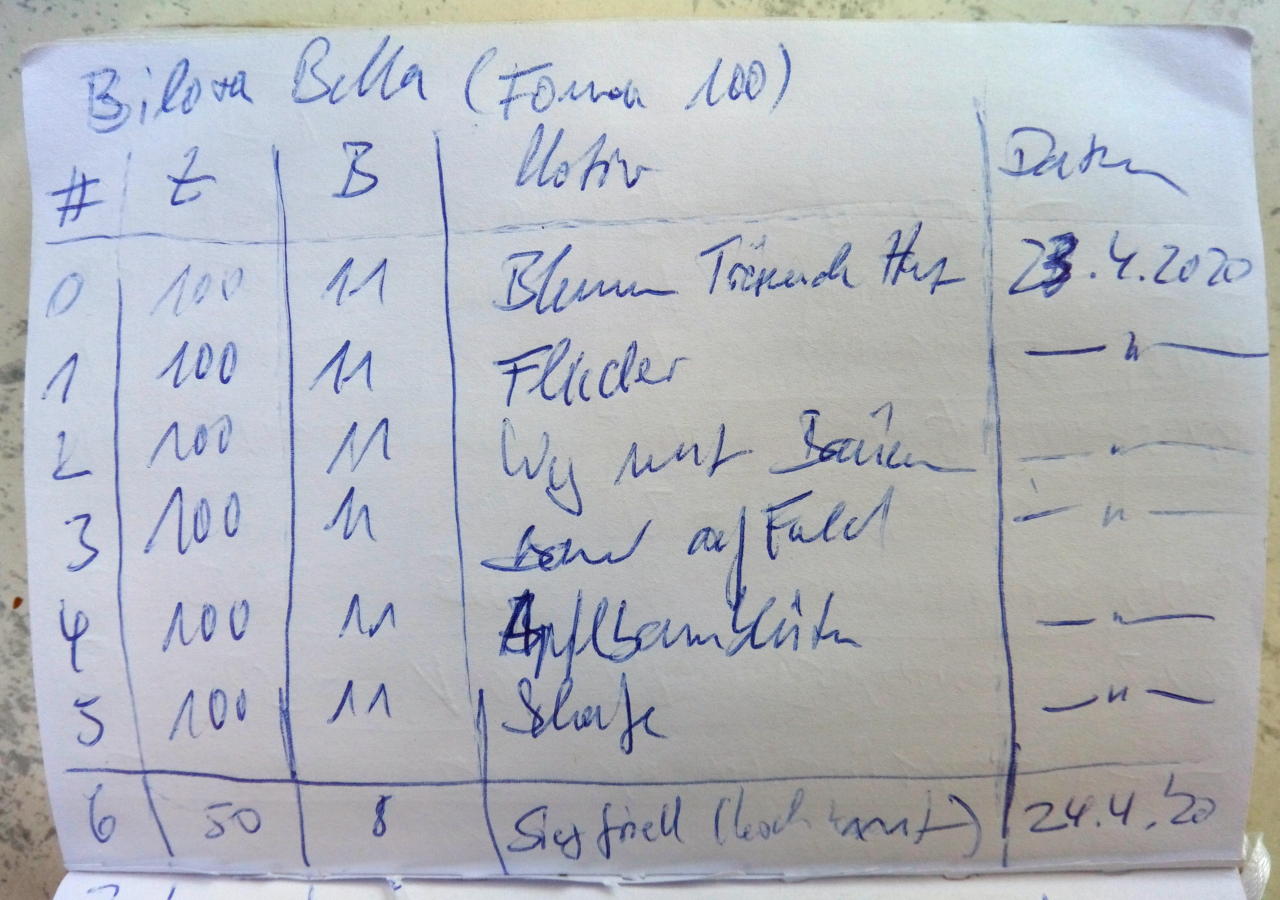 Bilora Bella (Foma 100)
# Z B Motiv Datum
0 100 11 Blumen Hof 23.4.2020
1 100 11 Flieder — " —
2 100 11 Weg mit Bäumen — " —
3 100 11 auf Feld — " —
4 100 11 Apfelbaumblüten — " —
5 100 11 Schafe — " —
6 50 8 Siegfried (hochkant) 24.4.'20